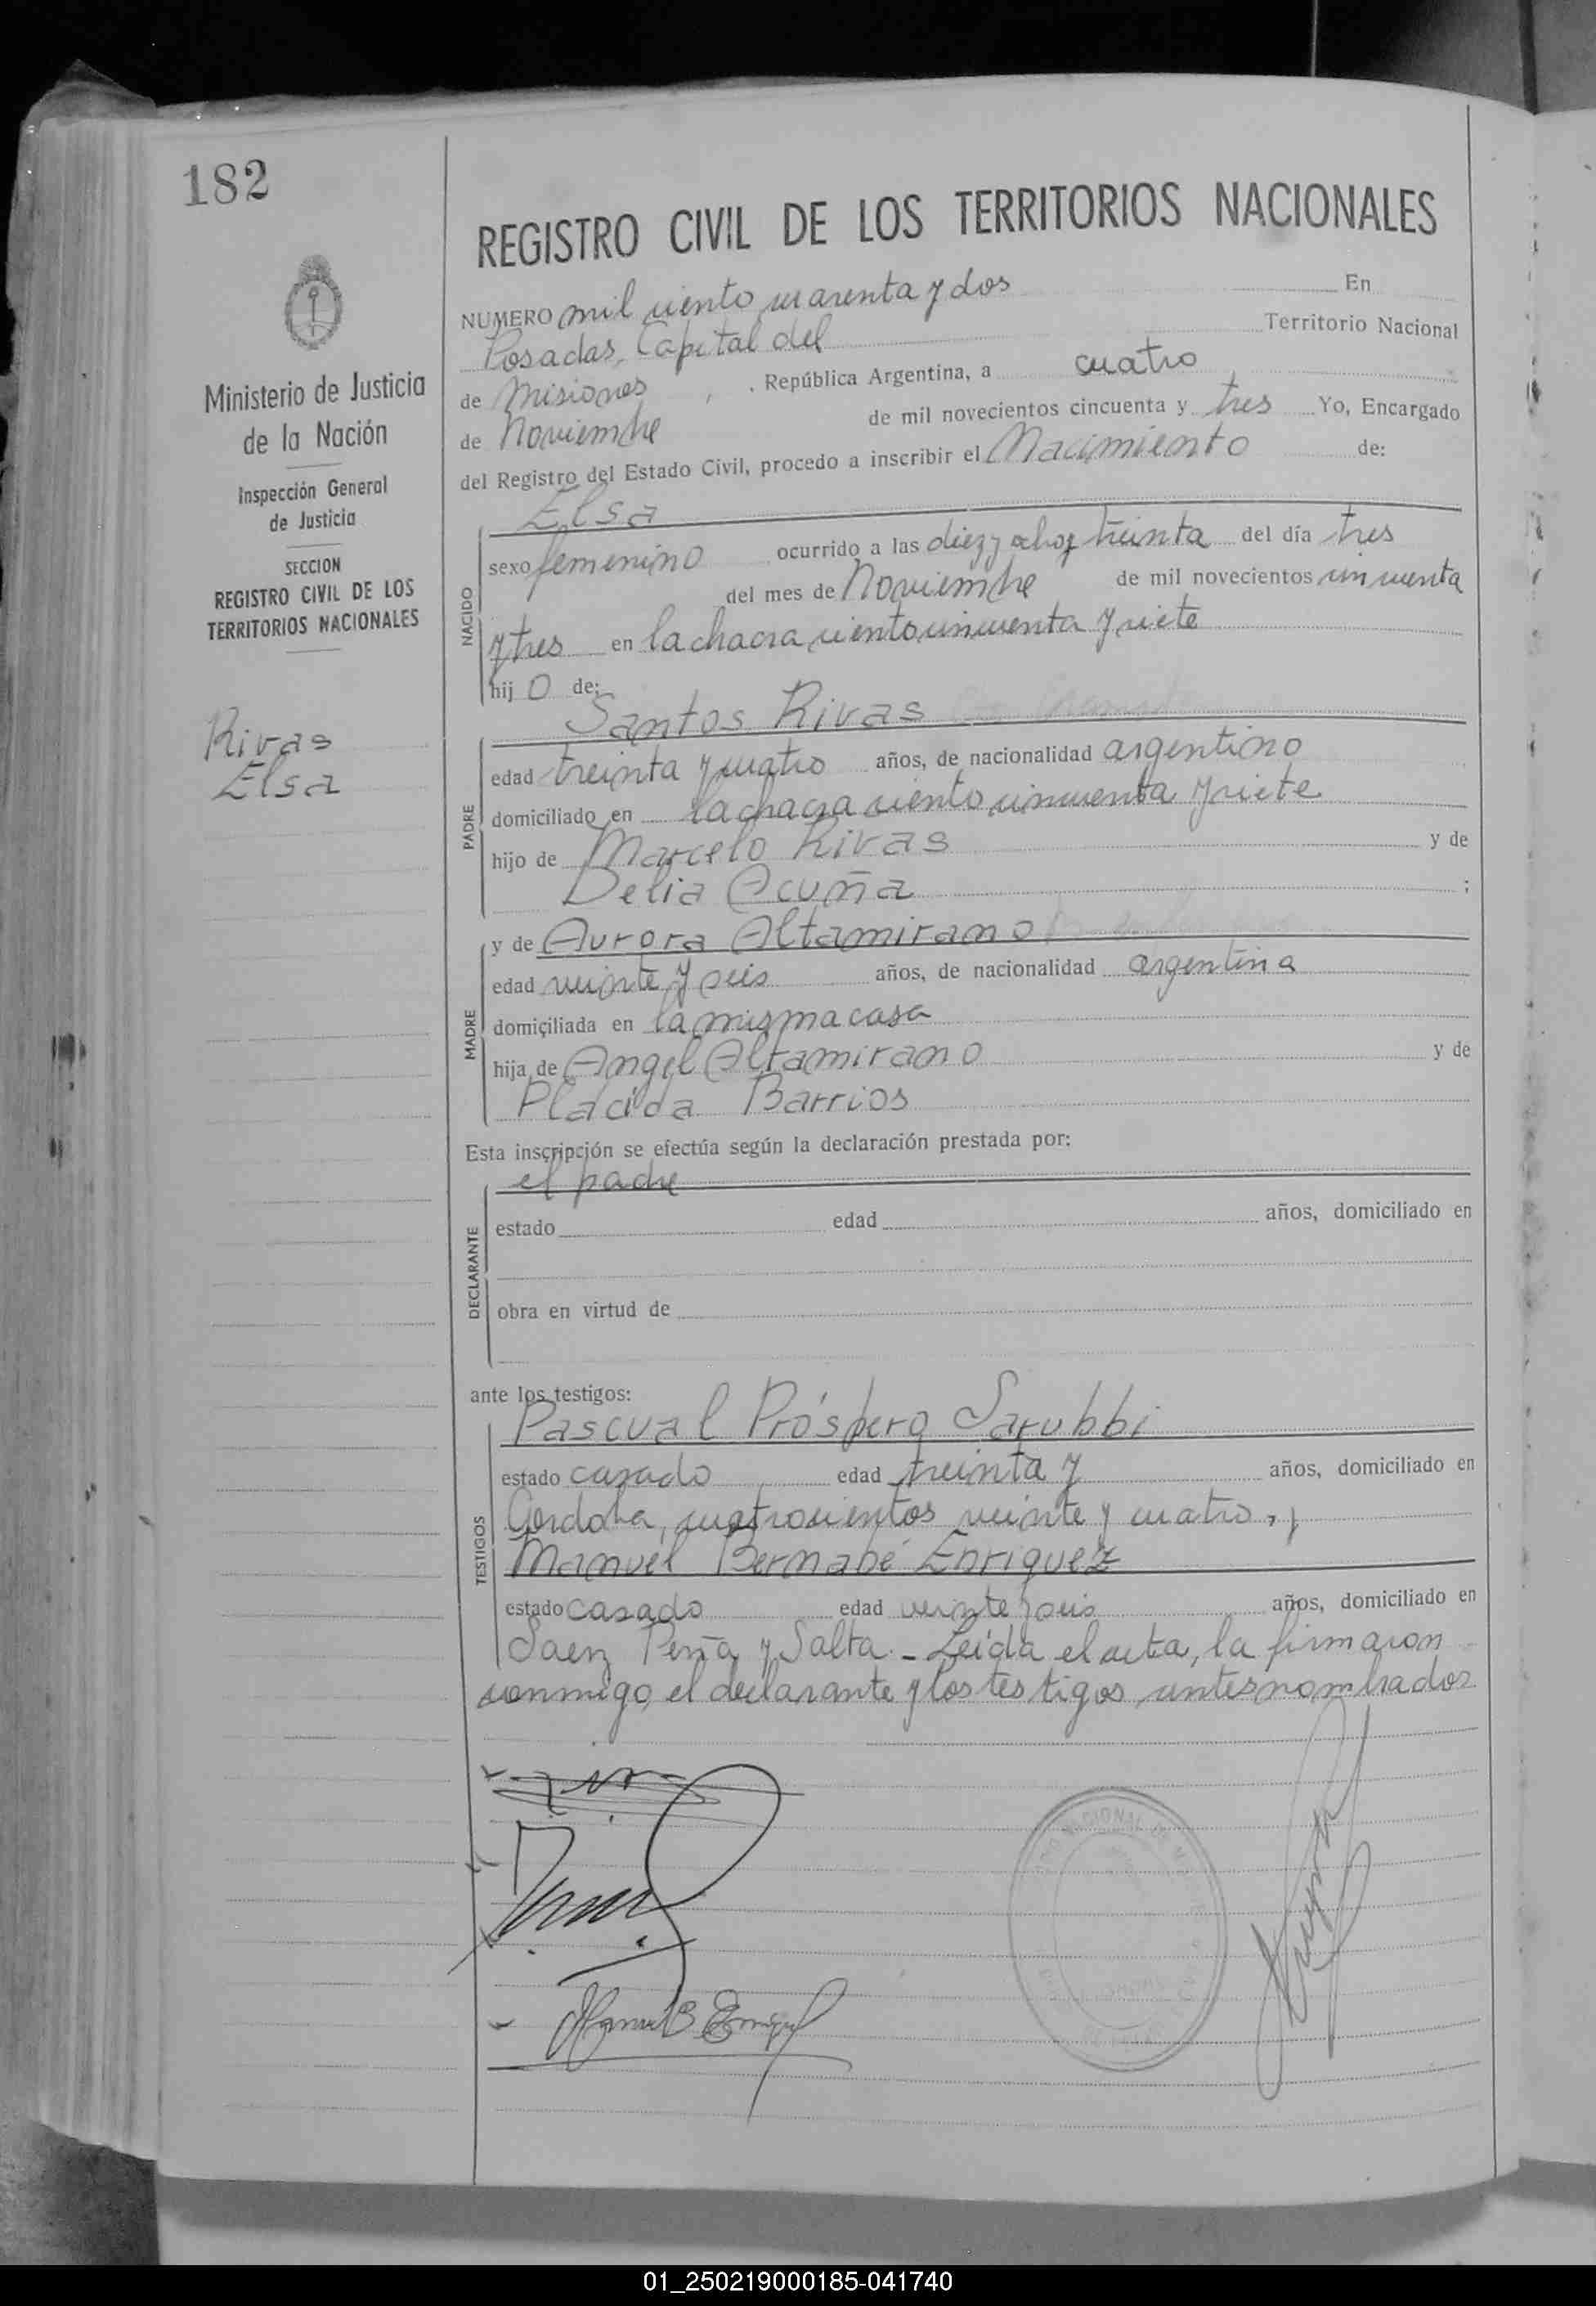 182
REGISTRO CIVIL DE LOS TERRITORIOS NACIONALES
Ministerio de Justicia
de la Nación
Inspección General
de Justicia
SECCION
REGISTRO CIVIL DE LOS
TERRITORIOS NACIONALES
Rivas
Elsa
NUMERO mil ciento cuarenta y dos En
Posadas, Capital del Territorio Nacional
de Misiones, República Argentina, a cuatro
de Noviembre de mil novecientos cincuenta y tres Yo, Encargado
del Registro del Estado Civil, procedo a inscribir el Nacimiento de:
NACIDO
Elsa
sexo femenino ocurrido a las diez y ocho y treinta del día tres
del mes de Noviembre de mil novecientos cincuenta
y tres en la chacra ciento cincuenta y siete
hij o de:
PADRE
Santos Rivas
edad treinta y cuatro años, de nacionalidad argentino
domiciliado en la chacra ciento cincuenta y siete
hijo de Marcelo Rivas y de
Delia Acuña ;
MADRE
y de Aurora Altamirano
edad veinte y seis años, de nacionalidad argentina
domiciliada en la misma casa
hija de Angel Altamirano y de
Plácida Barrios
Esta inscripción se efectúa según la declaración prestada por:
DECLARANTE
el padre
estado edad años, domiciliado en
obra en virtud de
ante los testigos:
TESTIGOS
Pascual Próspero Sarubbi
estado casado edad treinta y años, domiciliado en
Córdoba, cuatrocientos veinte y cuatro, y
Manuel Bernabé Enriquez
estado casado edad veinte y seis años, domiciliado en
Saenz Peña y Salta.- Leída el acta, la firmaron
conmigo, el declarante y los testigos antesnombrados
Manuel B Enriquez
01_250219000185-041740